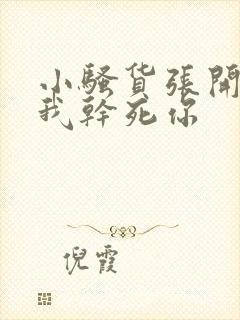 小騷货張開
我幹死你
倪霞